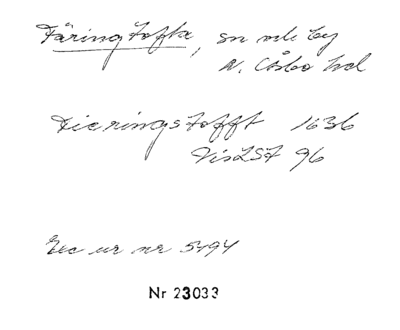 Färingtofta, sn och by
N. Åsbo hd
Fieringstofft 1636
VisLSt 96
Exc ur nr 5494
Nr 23033